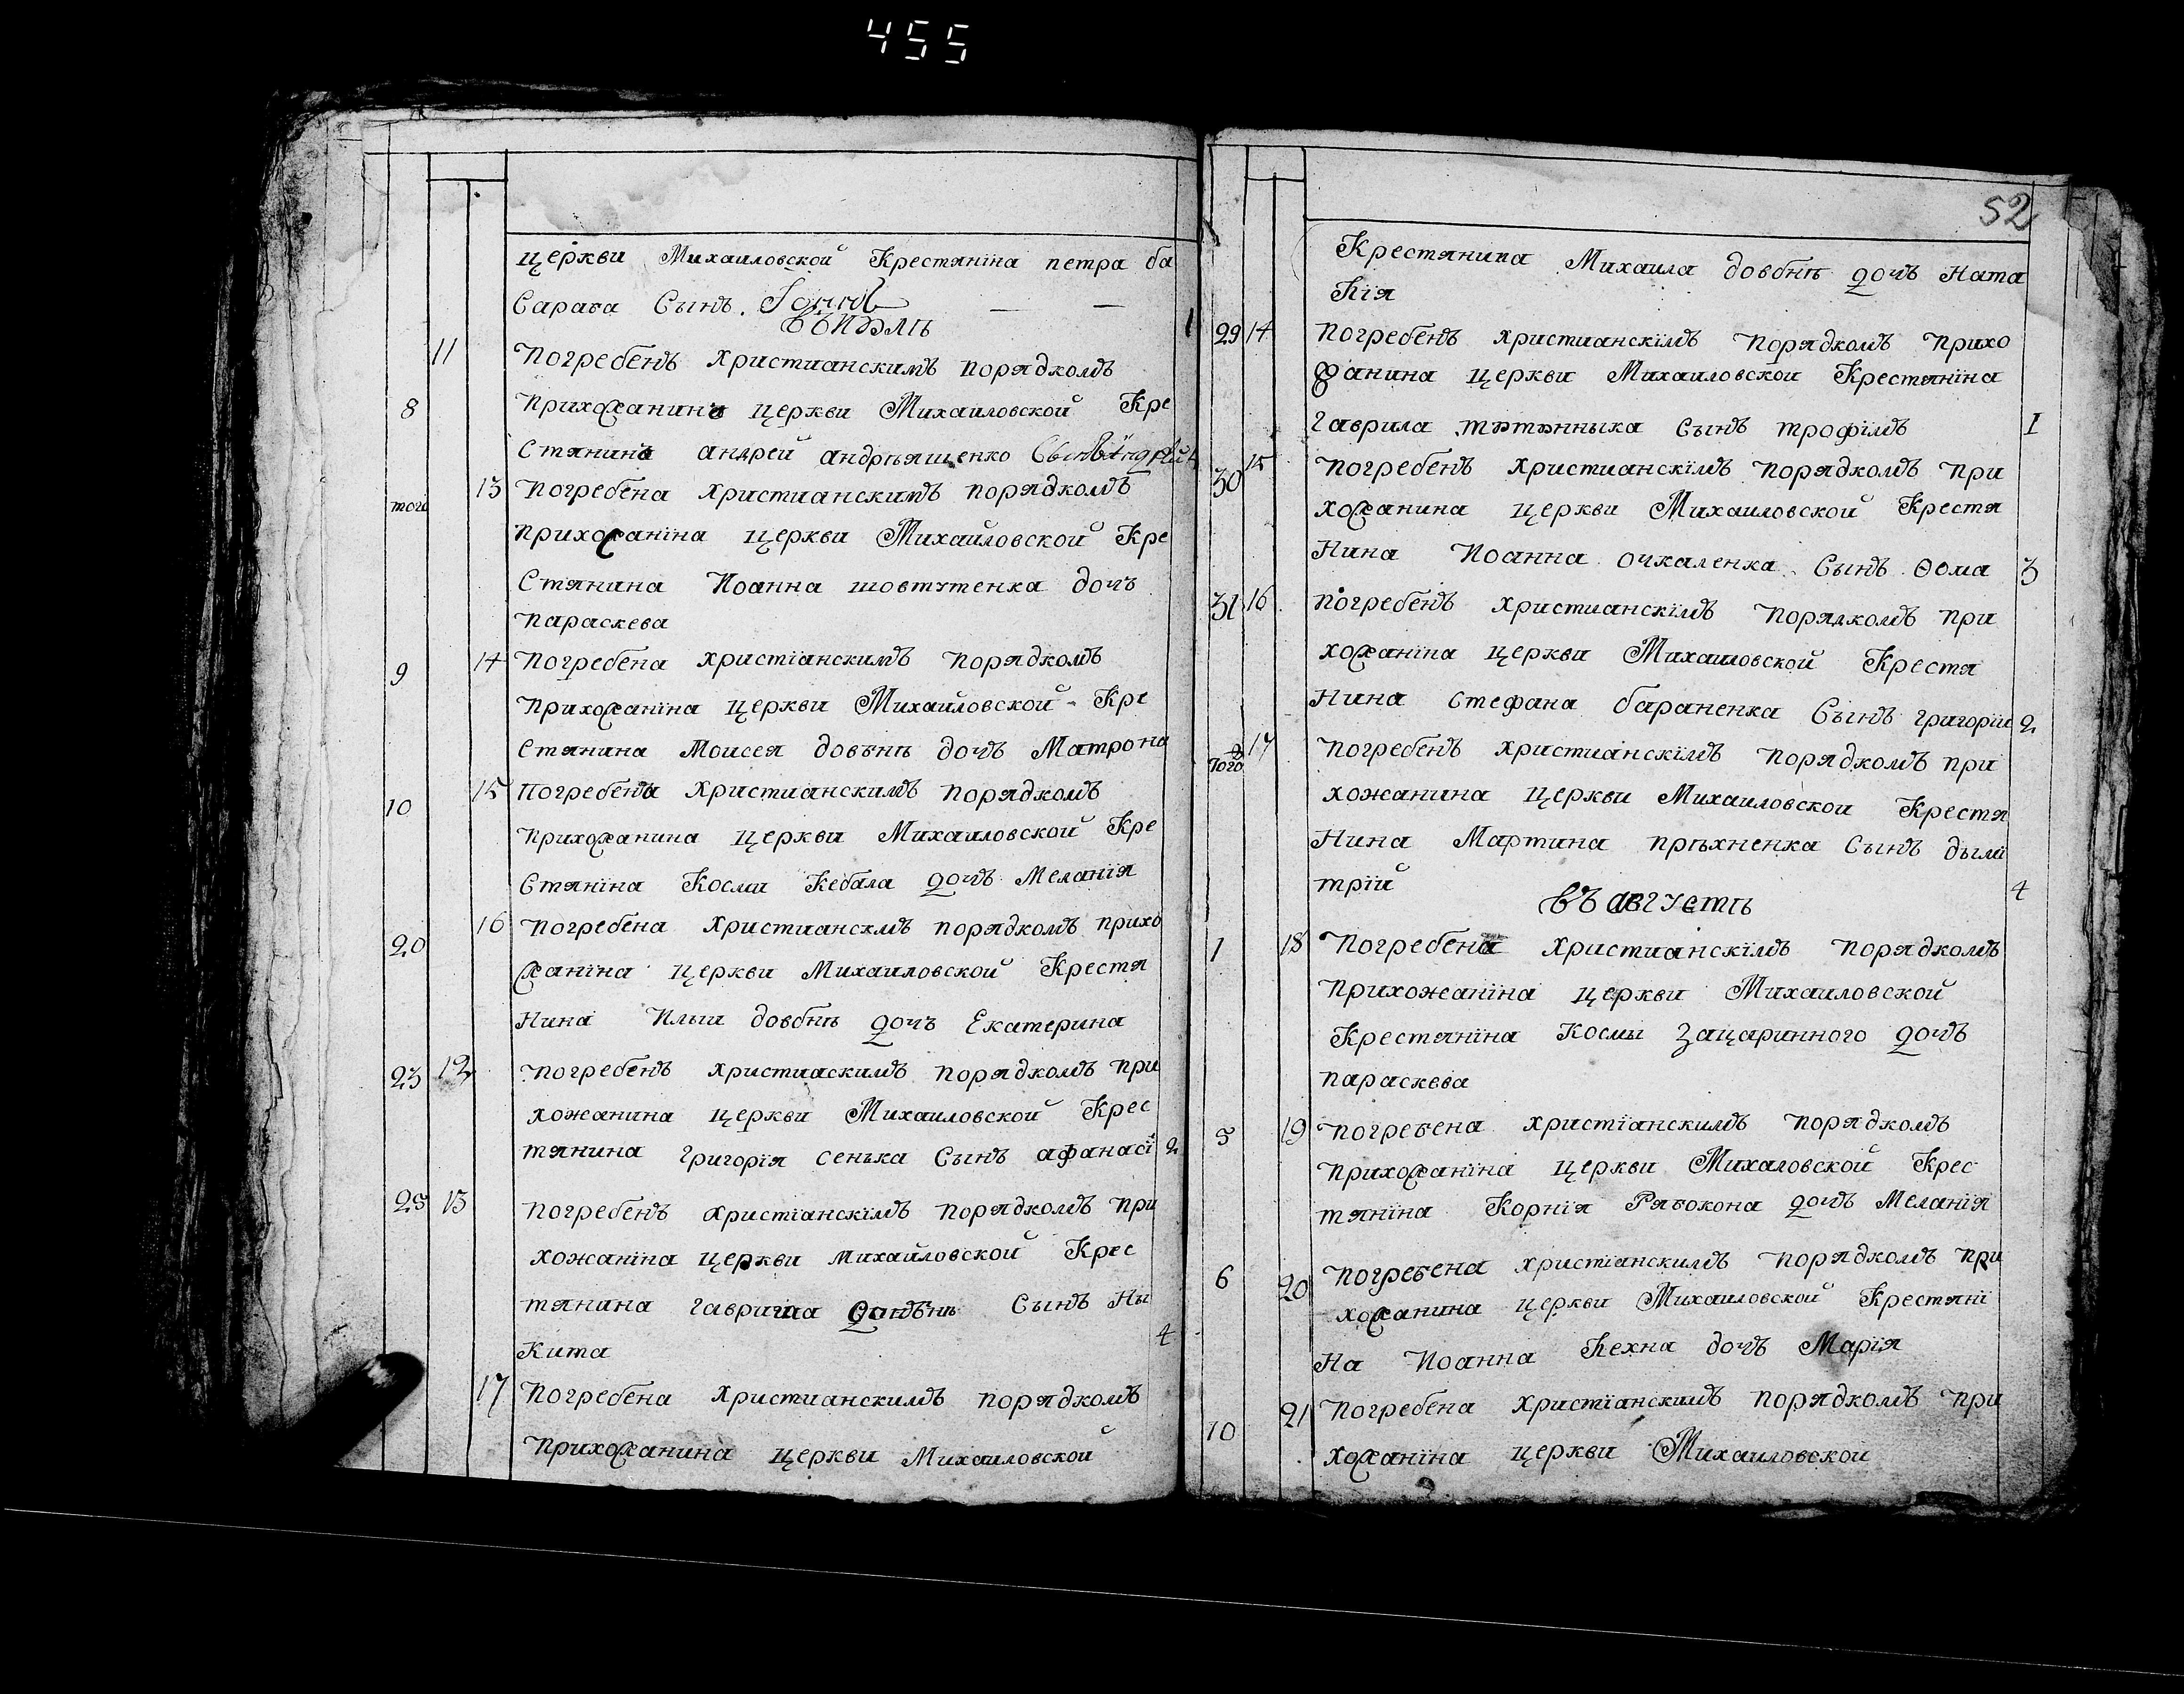 455
церкви Михаиловской Крестяніна петра ба
Сараба Сынъ
въ Июлѣ 1
11 Погребенъ христианскимъ порядкомъ
8 прихожанина церкви Михаиловской Кре
Стянина андреи андрѣяшенко Сынъ Андрей
того 13 Погребена христианскимъ порядкомъ
прихожаніна церкви Михайловской Кре
Стянина Иоанна шовтутенка дочъ
параскева
9 14 Погребена христіанскимъ порядкомъ
прихожаніна церкви Михаиловской Кре
Стянина Моисея довбнѣ дочъ Матрона
10 15 Погребена христианскимъ порядкомъ
прихожанина церкви Михаиловской Кре
Стяніна Косми Кебала дочъ Меланія
20 16 Погребена христианскмъ порядкомъ прихо
жаніна церкви Михаиловской Крестя
Нина Илъи довбнѣ дочъ Екатерина
23 12 Погребенъ христиаскимъ порядкомъ при
хожанина церкви Михаиловской Крес
тянина григорія сенька Сынъ афанасі 2
25 13 Погребенъ христіанскімъ порядкомъ при
хожаніна церкви михайловской Крес
тянина гаврила Сынъ Ны
Кита 4
17 Погребена христианскимъ порядкомъ
прихожанина церкви Михаиловской
52
Крестянина Михаила довбнѣ дочъ Ната
лія
29 14 Погребенъ христианскімъ порядкомъ прихо
жанина церкви Михаиловскои Крестяніна
гаврила Сынъ трофімъ 1
30 15 погребенъ христианскімъ порядкомъ при
хожанина церкви Михаиловской Крестя
Нина Иоанна очкаленка Сынъ Ѳома 3
31 16 погребенъ христианскімъ порядкомъ при
хожаніна церкви Михаиловской Крестя
Нина Стефана бараненка Сынъ григоріи 2
того 17 погребенъ христианскімъ порядкомъ при
хожанина церкви Михаиловскои Крестя
Нина Мартина прѣхненка Сынъ дыми
трій 4
въ августѣ
1 18 Погребена христианскімъ порядкомъ
прихожаніна церкви Михаиловской
Крестяніна Космы Зацаринного дочъ
параскева
5 19 погребена христіанскимъ порядкомъ
прихожаніна церкви Михаловской Крес
тяніна Корнія Рябокона дочъ Меланія
6 20 погребена христіанскимъ порядкомъ при
хожанина церкви Михаиловской Крестяні
На Иоанна Кехна дочъ Марія
10 21 Погребена христіанскимъ порядкомъ при
хожаніна церкви Михаиловской